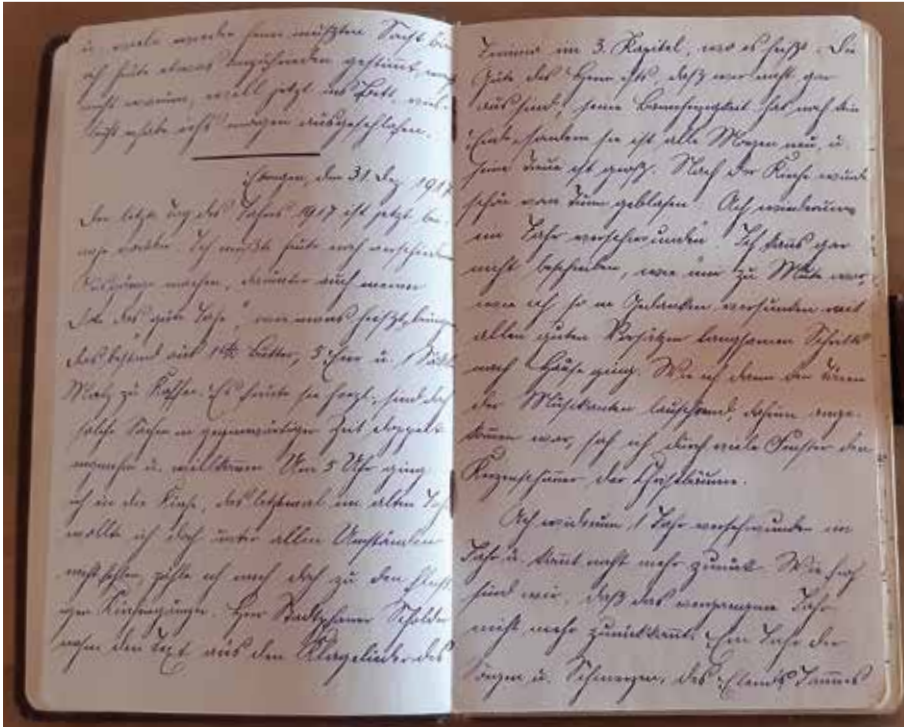 u. viele wieder heim mußten. Sonst bin
ich heute etwas unzufrieden gestimmt, weiß
nicht warum, will jetzt ins Bett, viel-
leicht habe ichs morgen ausgeschlafen.
Ebingen, den 31. Dez. 1917
Der letzte Tag des Jahres 1917 ist jetzt bei-
nahe vorbei. Ich mußte heute noch verschiedene
Ausgänge machen, darunter auch meiner
Dote das "gute Jahr", wie mans heißt, bringen
das bestand aus 1 ℔ Butter, 5 Eier u. 1
Malz zu Kaffee. Es freute sie sehr, sind doch
solche Sachen in gegenwärtiger Zeit doppelt
angenehm u. willkommen. Um 5 Uhr ging
ich in die Kirche, das letztemal im alten Jahr
wollte ich doch unter allen Umständen
nicht fehlen, zähle ich mich doch zu den fleiß-
igen Kirchengänger. Herr Stadtpfarrer
nahm den Text aus den Klagelieder des
Jeremia im 3. Kapitel, wo es heißt: Die
Güte des Herrn ists, daß wir nicht gar
aus sind, seine Barmherzigkeit hat noch kein
Ende, sondern sie ist alle Morgen neu, u.
seine Treue ist groß. Nach der Kirche wurde
schön vom Turm geblasen. Ach wiederum
ein Jahr verschwunden. Ich kann gar
nicht beschreiben, wie mir zu Mute war,
wie ich so in Gedanken versunken mit
allen guten Vorsätzen langsamen Schritts
nach Hause ging. Wie ich dann den Tönen
der Musikanten lauschend, daheim ange-
kommen war, sah ich durch viele Fenster den
Kerzenschimmer der Christbäume.
Ach wiederum 1 Jahr verschwunden ein
Jahr u. kommt nicht mehr zurück. Wie froh
sind wir, daß das vergangene Jahr
nicht mehr zurückkommt. Ein Jahr der
Sorgen u. Schmerzen, des Elends Jammers